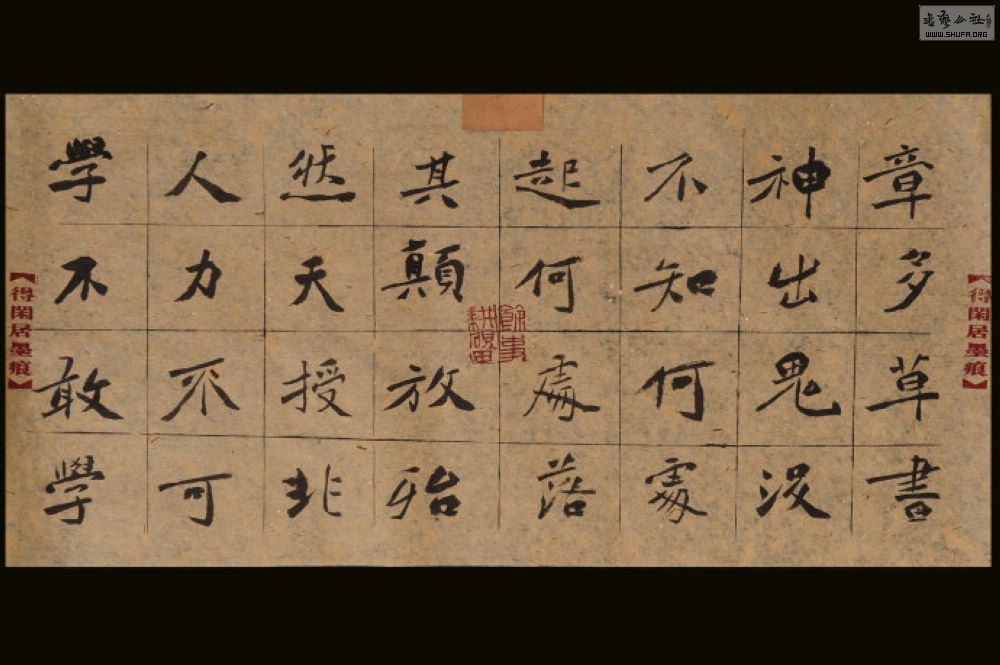 章多草書
神出鬼没
不知何處
起何處落
其顛放殆
然天授非
人力不可
學不敢學
【得閑居墨痕】
【得閑居墨痕】
WWW.SHUFA.ORG